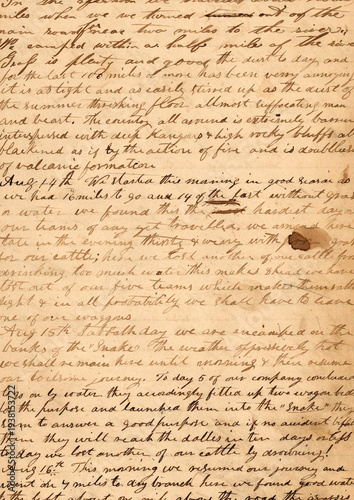 In the afternoon we
miles when we we turned out of the
main road near two miles to the river
We camped within a half miles of the river
Grass is plenty and good the dust to day and
for the last 100 miles or more has been very annoying
it is as light and as easily stirred up as the dust of
the summer threshing floor allmost suffocating man
and beast. The country all around is extremely barren
interspersed with deep & high rocky bluffs all
blackened as if by the action of fire and is doubtless
of valcanic formation
Aug 14th We started this morning in good season as
we had 16 miles to go and 14 of the last without grass
or water we found this the hardest day on
our teams of any yet travelled, we
late in the evening thirsty & weary with
for our cattle; here we lost another of our cattle from
drinking too much water this makes that we have
lost out of our five teams which makes teams all
light & in all probability we shall have to leave
one of our waggons
Aug 15th Sabbath day we are encamped on the
banks of the "Snake" The weather oppressively hot
we shall remain here until morning & then resume
our toilsome journey. To day 5 of our company conclude
to go by water they accordingly fitted up two waggon beds
for the purpose and launched them into the "Snake" they
seem to answer a good purpose and if no accident befalls
them they will reach the dalles in ten days or
day we lost another of our cattle by drowning!
Aug 16th This morning we resumed our journey and
went on 7 miles to dry branch here we found good water
to the left about one mile above the road
Adobe Stock | #1938153722